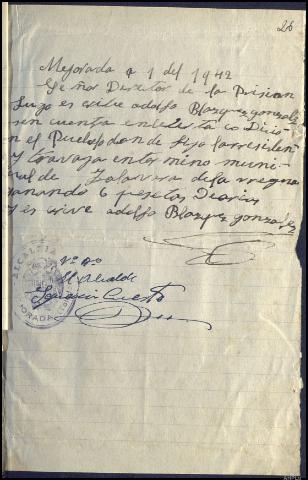 26
Mejorada a 1 del 1942
Señor Director de la Prision
Luzo es crive adolfo Blazquez gonzalez
sen cuenta enlibertá co Dicio
n el Pueblo don de fijo la rresiden
y travaja en ter mino muni
cipal de Talavera de la rreyna
ganando 6 pesetas Diarias
y es crive adolfo Blazquez gonzalez
Vº Bº
El Alcalde
Cuesta
ALCALDIA
MEJORADA